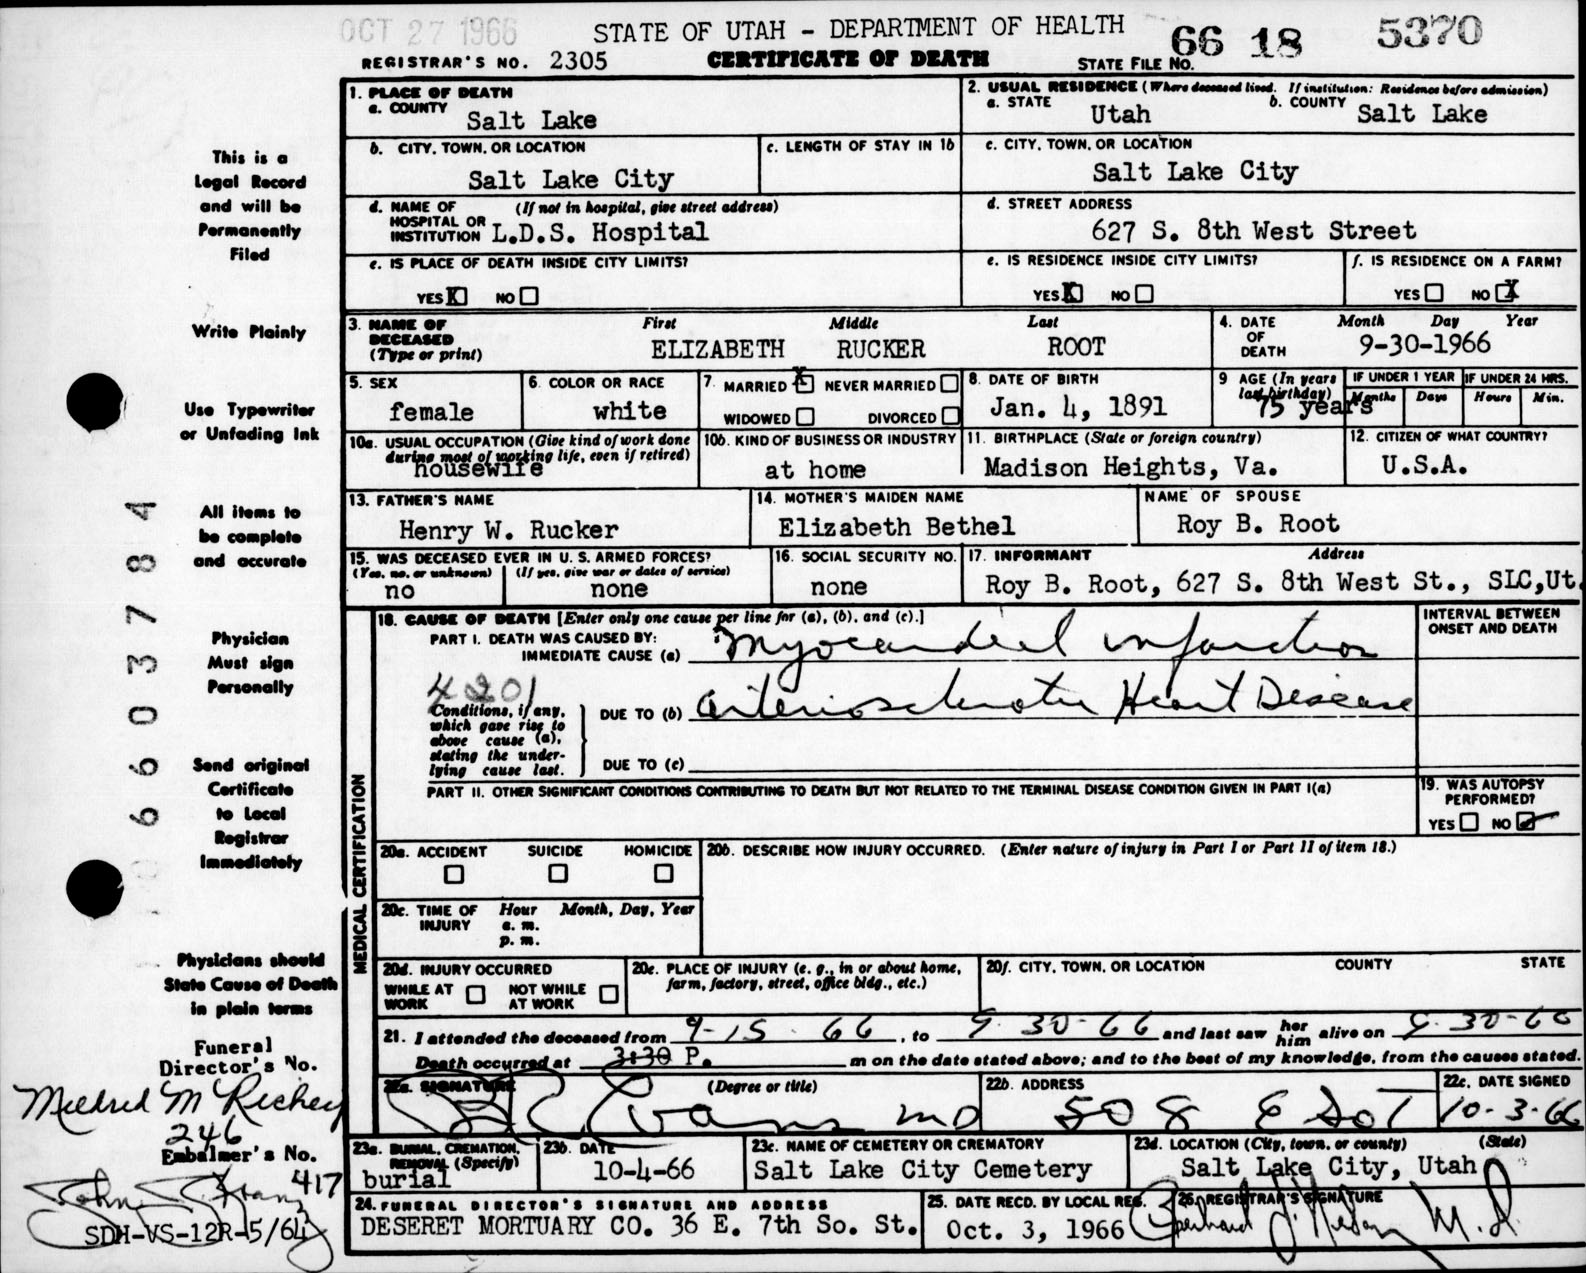 OCT 27 1966
STATE OF UTAH - DEPARTMENT OF HEALTH
66 18 5370
REGISTRAR'S NO. 2305
CERTIFICATE OF DEATH
STATE FILE NO.
This is a
Legal Record
and will be
Permanently
Filed
Write Plainly
Use Typewriter
or Unfading Ink
All items to
be complete
and accurate
Physician
Must sign
Personally
Send original
Certificate
to Local
Registrar
Immediately
Physicians should
State Cause of Death
in plain terms
Funeral
Director's No.
Mildred M Richey
246
Embalmer's No.
417
SDH-VS-12R-5/64
6 6 0 3 7 8 4
1. PLACE OF DEATH
a. COUNTY
Salt Lake
2. USUAL RESIDENCE (Where deceased lived. If institution: Residence before admission)
a. STATE
Utah
b. COUNTY
Salt Lake
b. CITY, TOWN, OR LOCATION
Salt Lake City
c. LENGTH OF STAY IN 1b
c. CITY, TOWN, OR LOCATION
Salt Lake City
d. NAME OF HOSPITAL OR INSTITUTION
(If not in hospital, give street address)
L.D.S. Hospital
d. STREET ADDRESS
627 S. 8th West Street
e. IS PLACE OF DEATH INSIDE CITY LIMITS?
YES X NO
e. IS RESIDENCE INSIDE CITY LIMITS?
YES X NO
f. IS RESIDENCE ON A FARM?
YES NO X
3. NAME OF DECEASED (Type or print)
First Middle Last
ELIZABETH RUCKER ROOT
4. DATE OF DEATH
Month Day Year
9-30-1966
5. SEX
female
6. COLOR OR RACE
white
7. MARRIED X NEVER MARRIED
WIDOWED DIVORCED
8. DATE OF BIRTH
Jan. 4, 1891
9 AGE (In years last birthday)
75 years
IF UNDER 1 YEAR
Months Days
IF UNDER 24 HRS.
Hours Min.
10a. USUAL OCCUPATION (Give kind of work done during most of working life, even if retired)
housewife
10b. KIND OF BUSINESS OR INDUSTRY
at home
11. BIRTHPLACE (State or foreign country)
Madison Heights, Va.
12. CITIZEN OF WHAT COUNTRY?
U.S.A.
13. FATHER'S NAME
Henry W. Rucker
14. MOTHER'S MAIDEN NAME
Elizabeth Bethel
NAME OF SPOUSE
Roy B. Root
15. WAS DECEASED EVER IN U. S. ARMED FORCES?
(Yes, no, or unknown)
no
(If yes, give war or dates of service)
none
16. SOCIAL SECURITY NO.
none
17. INFORMANT Address
Roy B. Root, 627 S. 8th West St., SLC,Ut.
MEDICAL CERTIFICATION
18. CAUSE OF DEATH [Enter only one cause per line for (a), (b), and (c).]
INTERVAL BETWEEN ONSET AND DEATH
PART I. DEATH WAS CAUSED BY:
IMMEDIATE CAUSE (a) Myocardial infarction
4201
Conditions, if any, which gave rise to above cause (a), stating the underlying cause last.
DUE TO (b) arteriosclerotic Heart Disease
DUE TO (c)
PART II. OTHER SIGNIFICANT CONDITIONS CONTRIBUTING TO DEATH BUT NOT RELATED TO THE TERMINAL DISEASE CONDITION GIVEN IN PART I(a)
19. WAS AUTOPSY PERFORMED?
YES NO
20a. ACCIDENT SUICIDE HOMICIDE
20b. DESCRIBE HOW INJURY OCCURRED. (Enter nature of injury in Part I or Part II of item 18.)
20c. TIME OF INJURY
Hour Month, Day, Year
a. m.
p. m.
20d. INJURY OCCURRED
WHILE AT WORK NOT WHILE AT WORK
20e. PLACE OF INJURY (e. g., in or about home, farm, factory, street, office bldg., etc.)
20f. CITY, TOWN, OR LOCATION COUNTY STATE
21. I attended the deceased from 9-15-66, to 9-30-66 and last saw her him alive on 9-30-66
Death occurred at 3:30 P. m on the date stated above; and to the best of my knowledge, from the causes stated.
22a. SIGNATURE (Degree or title)
Evans MD
22b. ADDRESS
508 E So T
22c. DATE SIGNED
10-3-66
23a. BURIAL, CREMATION, REMOVAL (Specify)
burial
23b. DATE
10-4-66
23c. NAME OF CEMETERY OR CREMATORY
Salt Lake City Cemetery
23d. LOCATION (City, town, or county) (State)
Salt Lake City, Utah
24. FUNERAL DIRECTOR'S SIGNATURE AND ADDRESS
DESERET MORTUARY CO. 36 E. 7th So. St.
25. DATE RECD. BY LOCAL REG.
Oct. 3, 1966
26. REGISTRAR'S SIGNATURE
M.D.